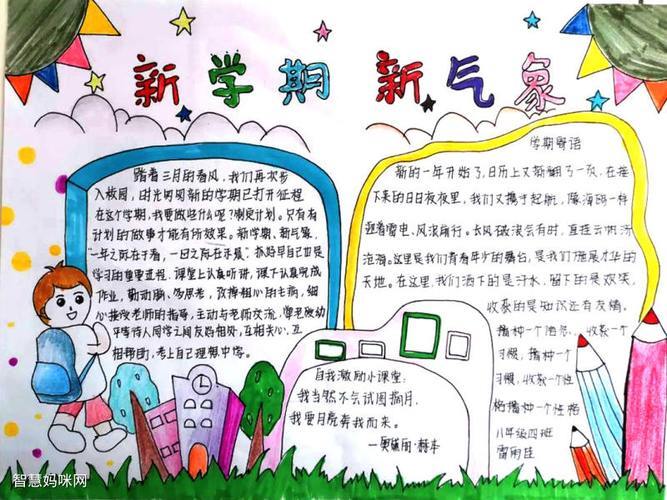 新学期 新气象
踏着三月的春风,我们再次步
入校园,时光匆匆新的学期已打开征程
在这个学期,我要做些什么呢?制定计划。只有有
计划的做事才能有所效果。新学期、新气象,
一年之际在于春,一日之际在于晨:抓好早自习也是
学习的重要过程,课堂上认真听讲,课下认真完成
作业,勤动脑、多思考,改掉粗心的毛病,细
心接受老师的指导,主动与老师交流,
平等待人同学之间友好相处,互相关心、互
相帮助,考上自己理想中学。
学期寄语
新的一年开始了,日历上又新翻了一页,在接
下来的日日夜夜里,我们又携手起航,像海鸥一样
迎着雷电、风浪前行。长风破浪会有时,直挂云帆济
沧海。这里是我们青春年少的舞台,是我们施展才华的
天地。在这里,我们洒下的是汗水,留下的是欢笑,
收获的是知识还有友情。
播种一个信念,收获一个
习惯,播种一个
习惯,收获一个性
格播种一个性格
八年级四班
自我激励小课堂:
我当然不会试图摘月,
我要月亮奔我而来。
—奥黛丽·赫本
智慧妈咪网